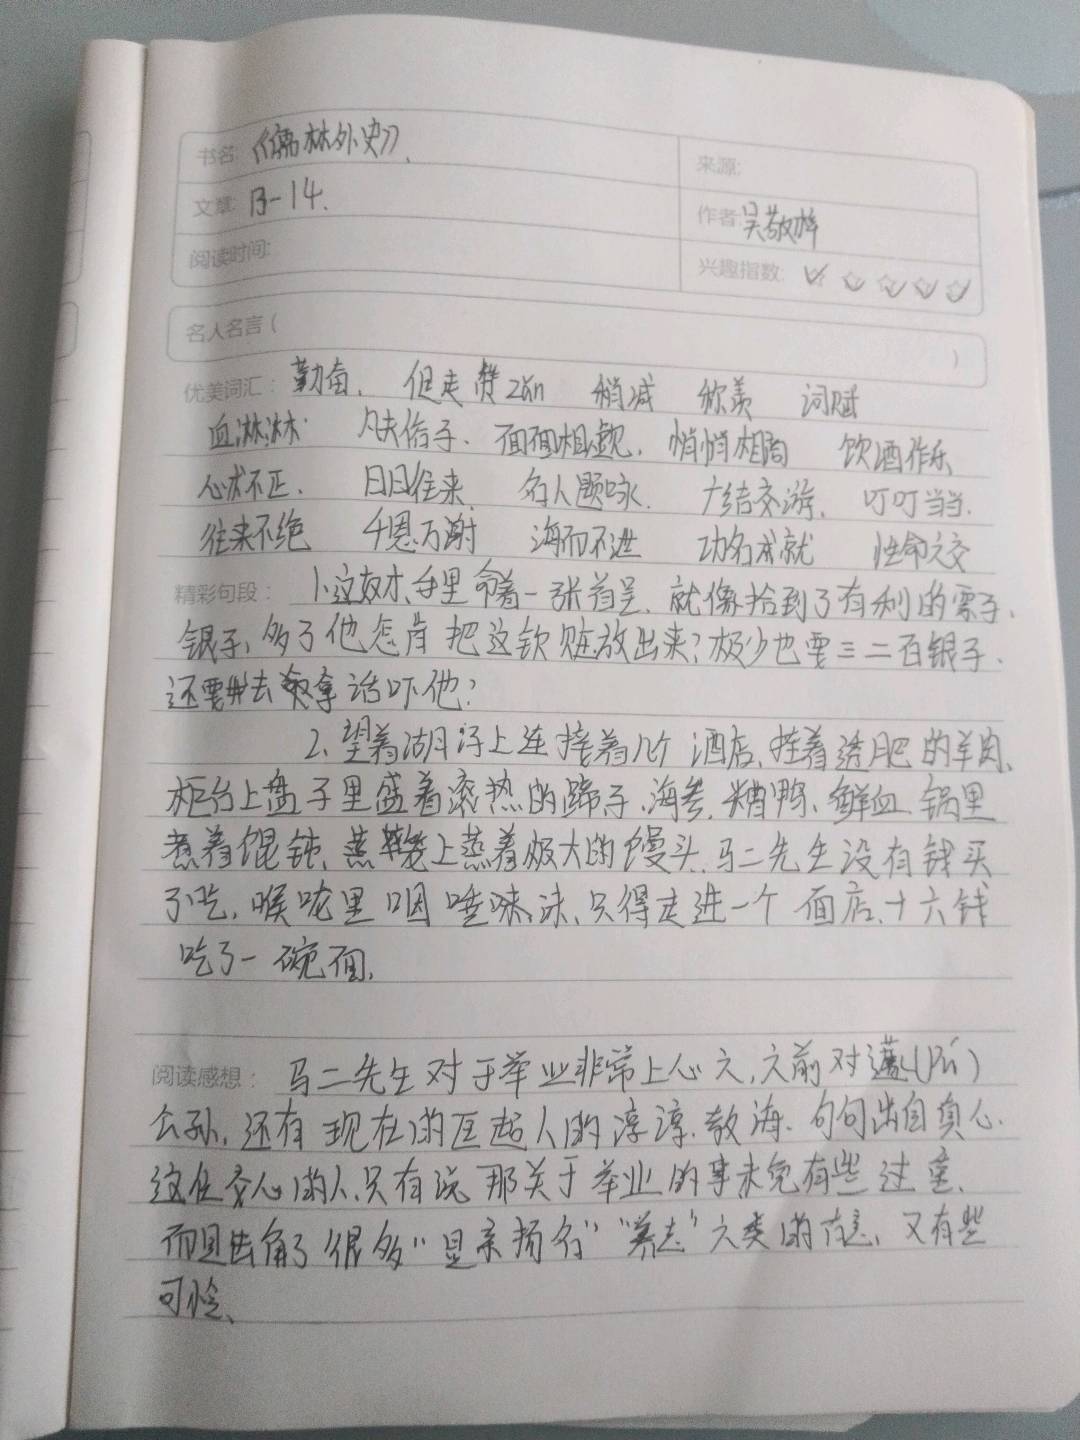 书名: 《儒林外史》.
来源:
文章: 13-14.
作者: 吴敬梓
阅读时间:
兴趣指数:
名人名言 ( )
优美词汇: 勤奋. 但走 zan 稍减 称羡 词赋
血淋淋 凡夫俗子. 面面相觑. 悄悄相商 饮酒作乐
心术不正. 日日往来 名人题咏. 广结交游. 叮叮当当.
往来不绝 千恩万谢 海而不进 功名成就 性命之交
精彩句段: 1.这奴才手里拿着一张首呈. 就像拾到了有利的票子.
银子, 多了他怎肯把这钦赃放出来? 极少也要三二百银子.
还要我去拿话吓他:
2. 望着湖沿上连接着几个酒店, 挂着透肥的羊肉.
柜台上盘子里盛着滚热的蹄子. 海参. 糟鸭. 鲜鱼 锅里
煮着馄饨, 蒸笼上蒸着极大的馒头. 马二先生没有钱买
了吃, 喉咙里咽唾沫, 只得走进一个面店, 十六钱
吃了一碗面.
阅读感想: 马二先生对于举业非常上心之, 之前对
公孙, 还有现在的匡超人的淳淳教海. 句句出自真心.
这位交心的人, 只有说那关于举业的事未免有些过重.
而且去角了很多“显亲扬名”“养志”之类的 又有些
可怜.